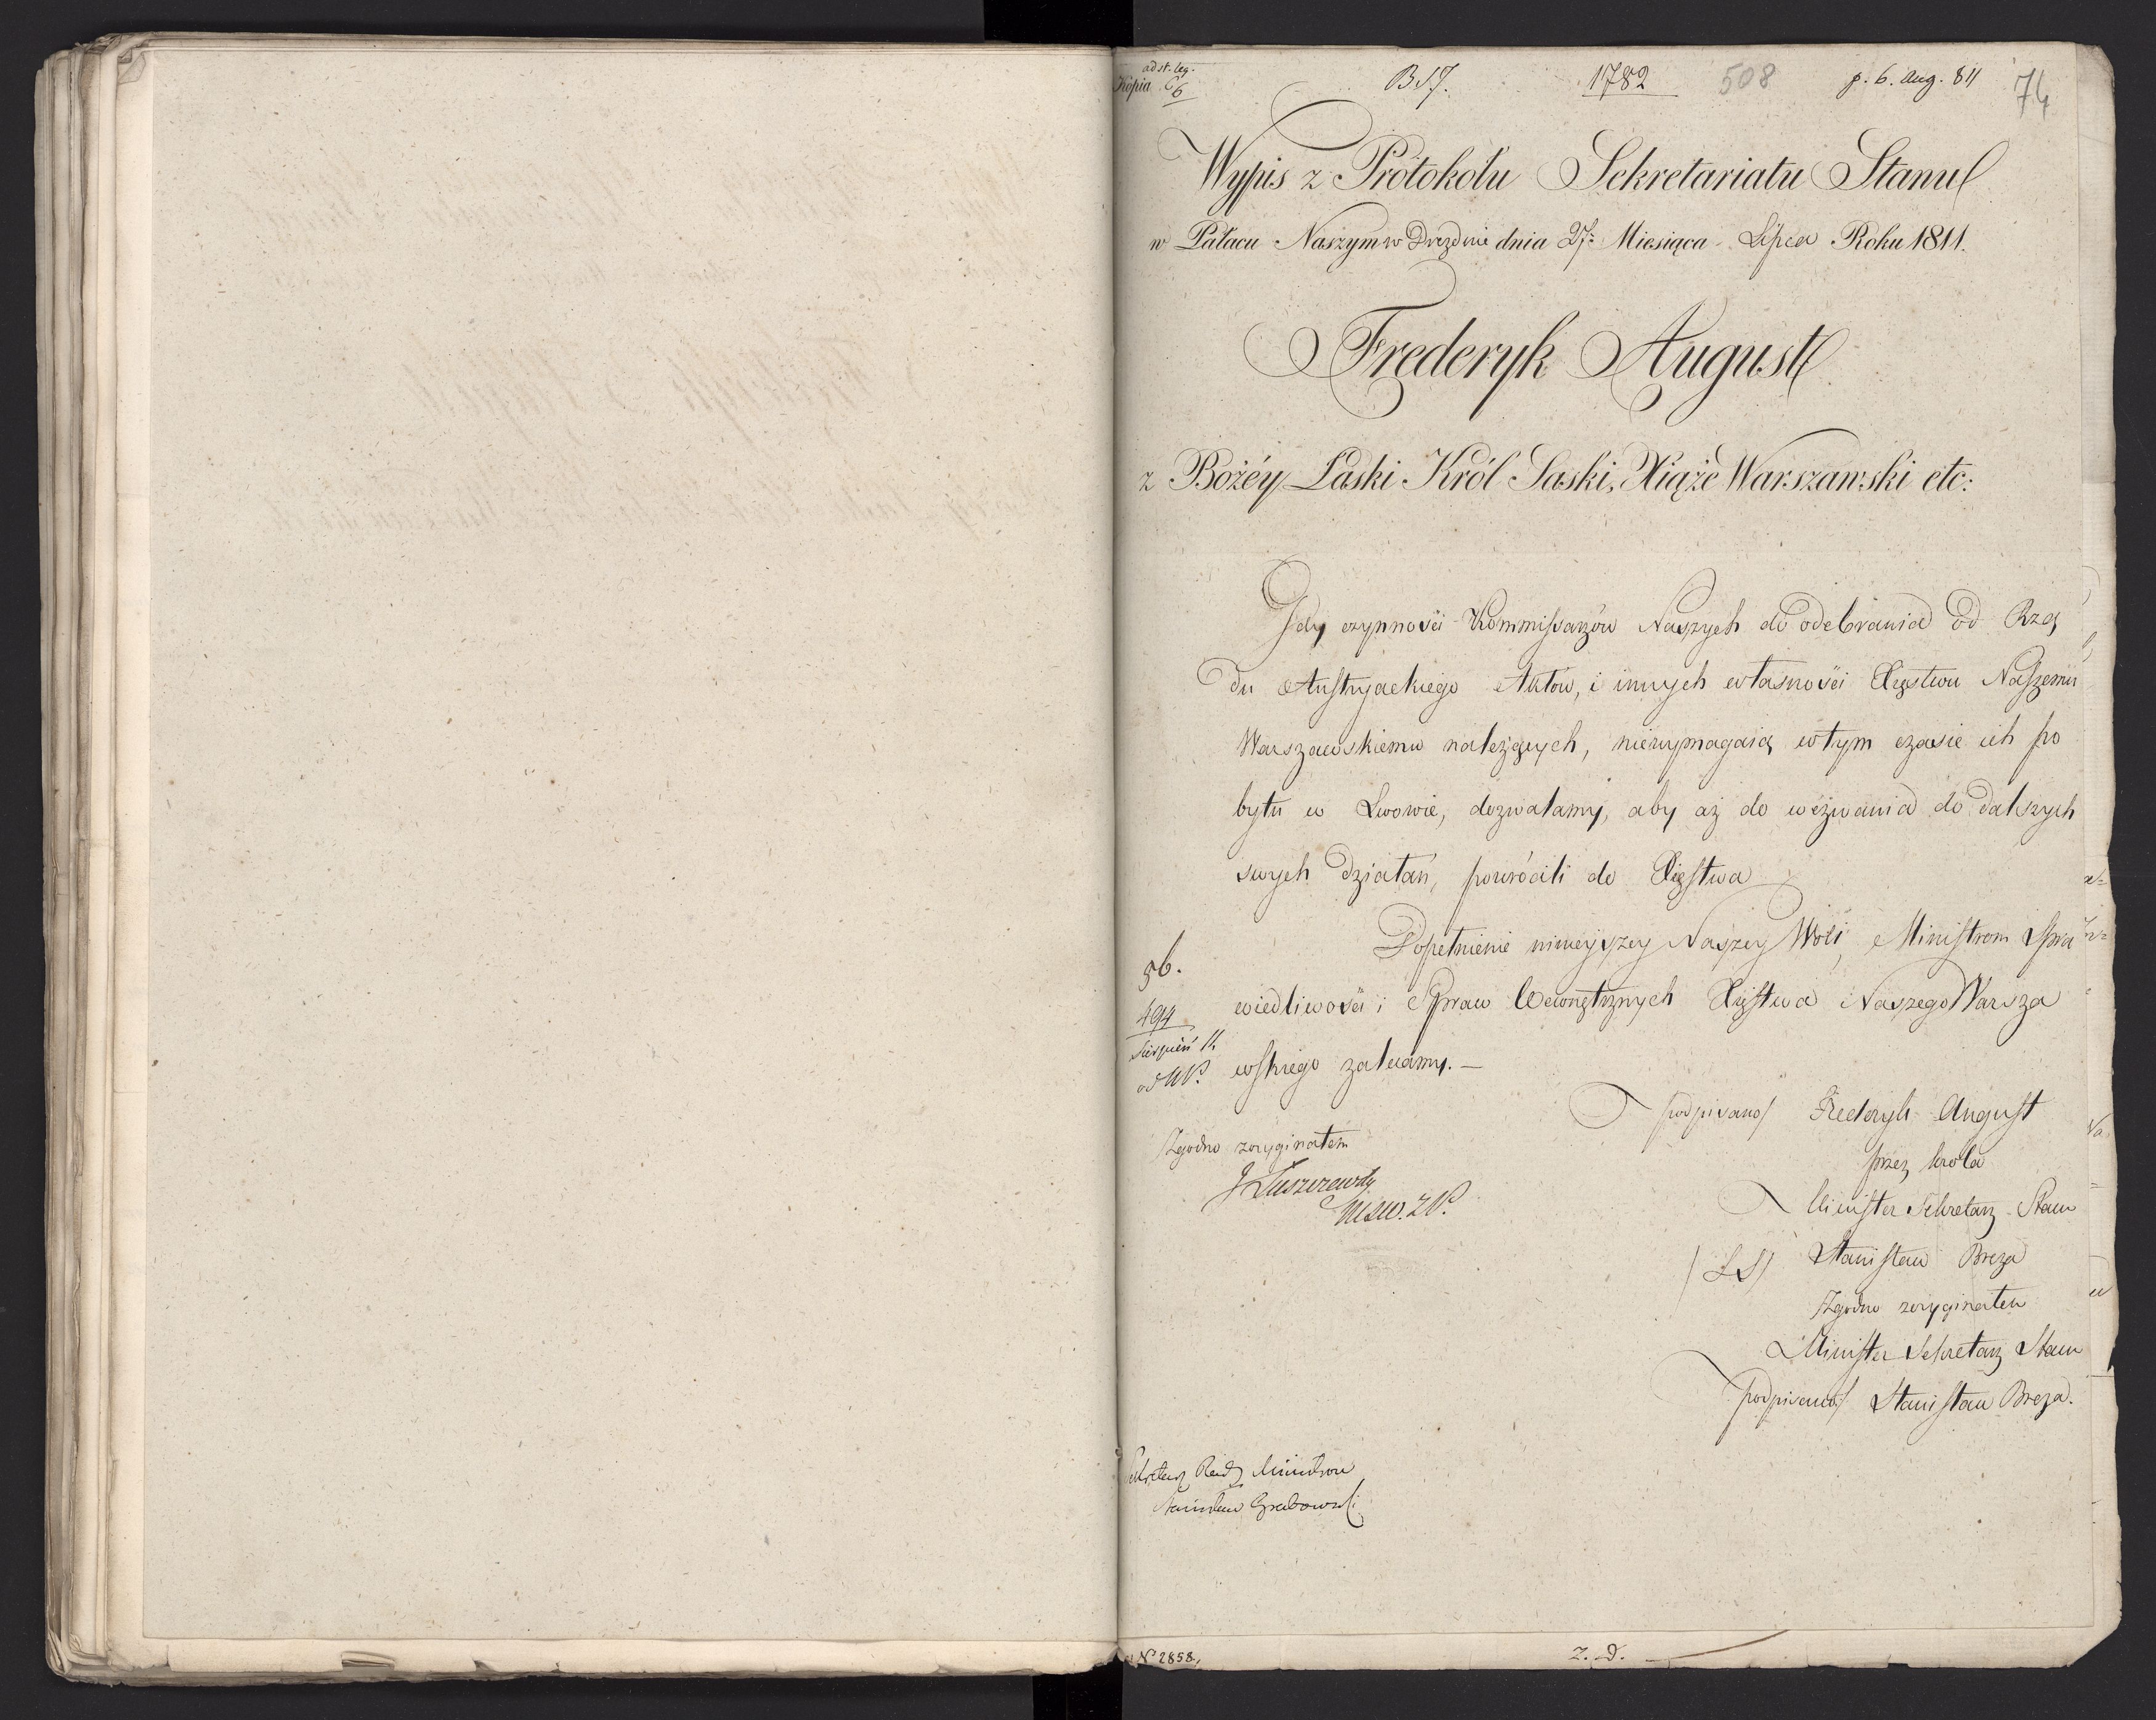 ad st. leg.
Kopia 6
6
B17.
1782
508
p. 6. Aug. 811
74
Wypis z Protokołu Sekretariatu Stanu
w Pałacu Naszym w Dreznie dnia 27: Miesiąca Lipca Roku 1811.
Frederyk August
z Bożéy Łaski Król Saski, Xiąże Warszawski etc:
Gdy czynności Kommissarzów Naszych do odebrania od Rzą
du Austryackiego Aktów, i innych własności Xięstwu Naszemu
Warszawskiemu należących, niewymagaią w tym czasie ich po
bytu w Lwowie, dozwalamy, aby aż do wezwania do dalszych
swych działań, powrócili do Xięstwa
Dopełnienie ninieyszey Naszey Woli, Ministrom Spra
wiedliwości i Spraw Wewnętrznych Xięstwa Naszego Warsza
wskiego zalecamy. —
56.
494
Sierpień 11
ad W.
podpisano/ Frederyk August
przez Krola
Minister Sekretarz Stanu
/LS/ Stanisław Breza
Zgodno z oryginałem
Minister Sekretarz Stanu
podpisano/ Stanisław Breza.
Zgodno z oryginałem
J Łuszczewski
M.S.W.
Sekretarz Rady Ministrów
Stanisław Grabowski
N 2858.
z. d.